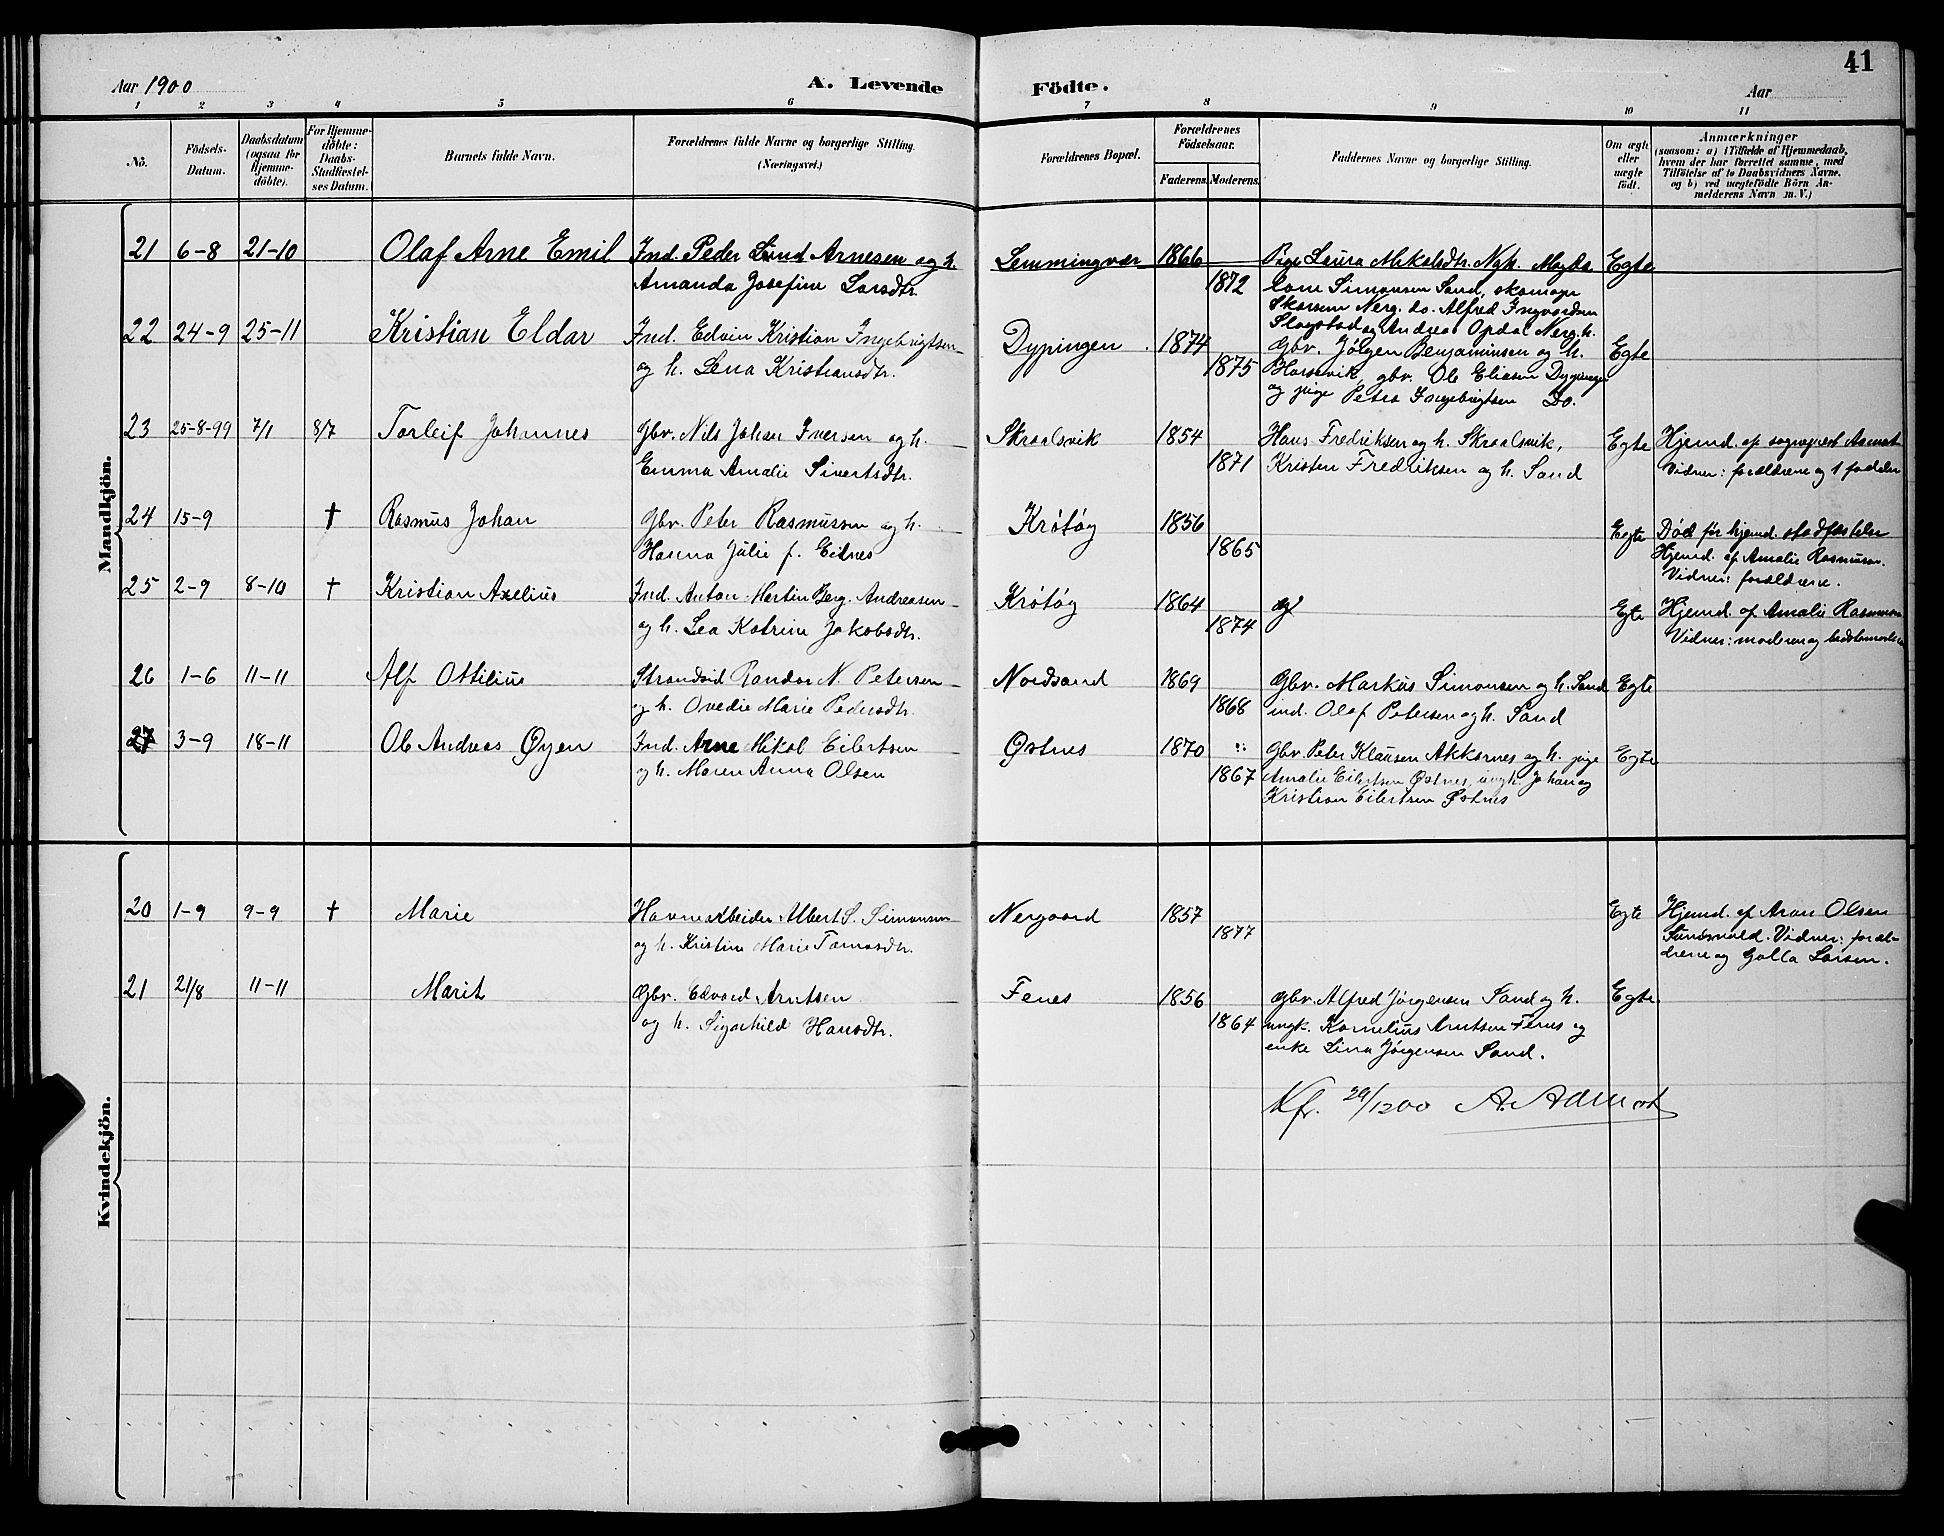 41
Aar 1900 A. Levende Födte. Aar
1 2 3 4 5 6 7 8 9 10 11
Nö.
Födsels-
Datum.
Daabsdatum
(ogsaa for
Hjemme-
döbte).
For Hjemme-
döbte:
Daabs-
Stadfæstel-
ses Datum.
Barnets fulde Navn.
Forældrenes fulde Navne og borgerlige Stilling.
(Næringsvei.)
Forældrenes Bopæl.
Forældrenes
Födselsaar.
Faderens. Moderens.
Faddernes Navne og borgerlige Stilling.
Om ægte
eller
uægte
födt.
Anmærkninger
(saasom: a) i Tilfælde af Hjemmedaab,
hvem der har forrettet samme, med
Tilföielse af to Daabsvidners Navne.
og b) ved uægtefödte Börn An-
melderens Navn m. V.)
Mandkjön.
21 6-8 21-10 Olaf Arne Emil Ind. Peder Lund Arnesen og h. Lemmingvær 1866 Pige Laura Mikalsdtr. Ngk. Magda Egte
Amanda Josefine Larsdtr. 1872 lone Simonsen Sand, skomager
Skarsem Nerg. do. Alfred Ingvardsen
Slagstad og Andrea Opdal Nerg. h.
22 24-9 25-11 Kristian Eldar Ind. Edvin Kristian Ingebrigtsen Dypingen 1874 Gbr. Jörgen Benjaminsen og h. Egte
og h. Lena Kristiansdtr. 1875 gbr. Ole Eliasen Dypingen
og pige Petra Ingebrigtsen Do.
23 25-8-99 7/1 8/7 Torleif Johannes Gbr. Nils Johan Iversen og h. Skraalsvik 1854 Hans Fredriksen og h. Skraalsvik, Egte Hjemd. af sognepræst Aamot
Emma Amalie Sivertsdtr. 1871 Kristen Fredriksen og h. Sand Vidner: forældrene og 1 fadder
24 15-9 † Rasmus Johan Gbr. Peter Rasmussen og h. Krötöy 1856 Egte Död för hjemd. stadfæstelse
Hanna Julie f. Eidnes 1865 Hjemd. af Amalie Rasmussen.
Vidner: forældrene.
25 2-9 8-10 † Kristian Axelius Ind. Anton Martin Berg Andreasen Krötöy 1864 Egte Hjemd. af Amalie Rasmussen
og h. Lea Katrine Jakobsdtr. 1874 Vidner: moderen og bedstemoderen
26 1-6 11-11 Alf Ottilius Strandsid. Randor N. Petersen Nordsand 1869 Gbr. Markus Simonsen og h. Sand Egte
og h. Ovedie Marie Pedersdtr. 1868 ind. Olaf Petersen og h. Sand
27 3-9 18-11 Ole Andreas Øyen Ind. Arne Mikal Eilertsen Østnes 1870 Gbr. Peter Klausen Akkarnes og h. pige Egte
og h. Maren Anna Olsen 1867 Amalie Eilertsen Østnes, ungk. Johan og
Kristian Eilertsen Østnes
Kvindekjön.
20 1-9 9-9 † Marie Havnearbeider Albert S. Simonsen Nergaard 1857 Egte Hjemd. af Aron Olsen
og h. Kristine Marie Tomasdtr. 1877 Vidner: foræl-
drene og Golla Larsen.
21 21/8 11-11 Marit Gbr. Edvard Arntsen Fenes 1856 Gbr. Alfred Jörgensen Sand og h. Egte
og h. Sigarhild Hansdtr. 1864 ungk. Kornelius Arntsen Fenes og
enke Lina Jörgensen Sand.
Kfr. 29/1200 A. Aamot